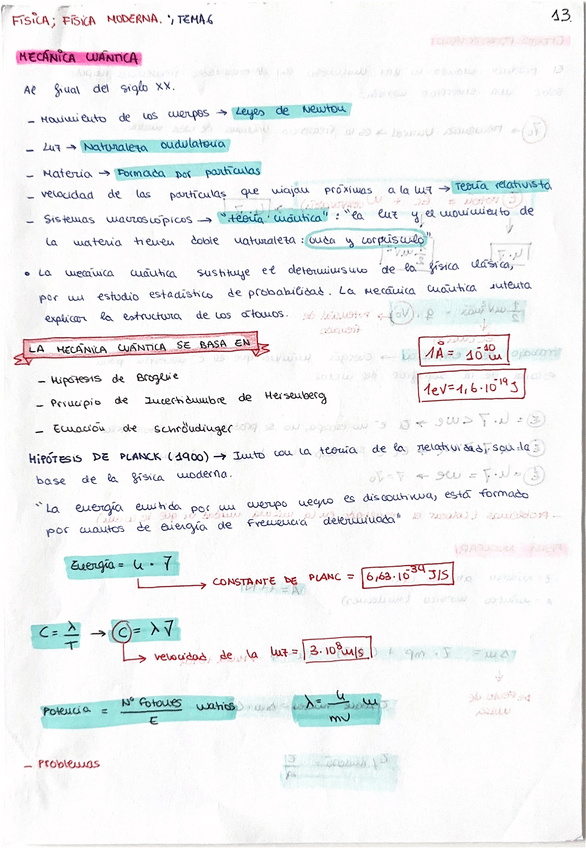 FÍSICA; FÍSICA MODERNA.; TEMA 6
13.
MECÁNICA CUÁNTICA
Al final del siglo XX.
- Movimiento de los cuerpos → Leyes de Newton
- Luz → Naturaleza ondulatoria
- Materia → Formada por partículas
- velocidad de las partículas que viajan próximas a la luz → Teoría relativista
- Sistemas macroscópicos → "teoría cuántica": "la luz y el movimiento de
la materia tienen doble naturaleza: onda y corpúsculo"
• La mecánica cuántica sustituye el determinismo de la física clásica,
por un estudio estadístico de probabilidad. La mecánica cuántica intenta
explicar la estructura de los átomos.
LA MECÁNICA CUÁNTICA SE BASA EN
1Å = 10⁻¹⁰ m
- Hipótesis de Broglie
1eV = 1,6·10⁻¹⁹ J
- Principio de Incertidumbre de Heisenberg
- Ecuación de Schröudinger
HIPÓTESIS DE PLANCK (1900) → Junto con la teoría de la relatividad, son la
base de la física moderna.
"La energía emitida por un cuerpo negro es discontinua, está formado
por cuantos de energía de frecuencia determinada"
Energía = h · ƒ
CONSTANTE DE PLANC = 6,63·10⁻³⁴ J/S
C = λ/T → C = λƒ
velocidad de la luz = 3·10⁸ m/s
Potencia = Nº Fotones / E watios
λ = h/mv m
- Problemas